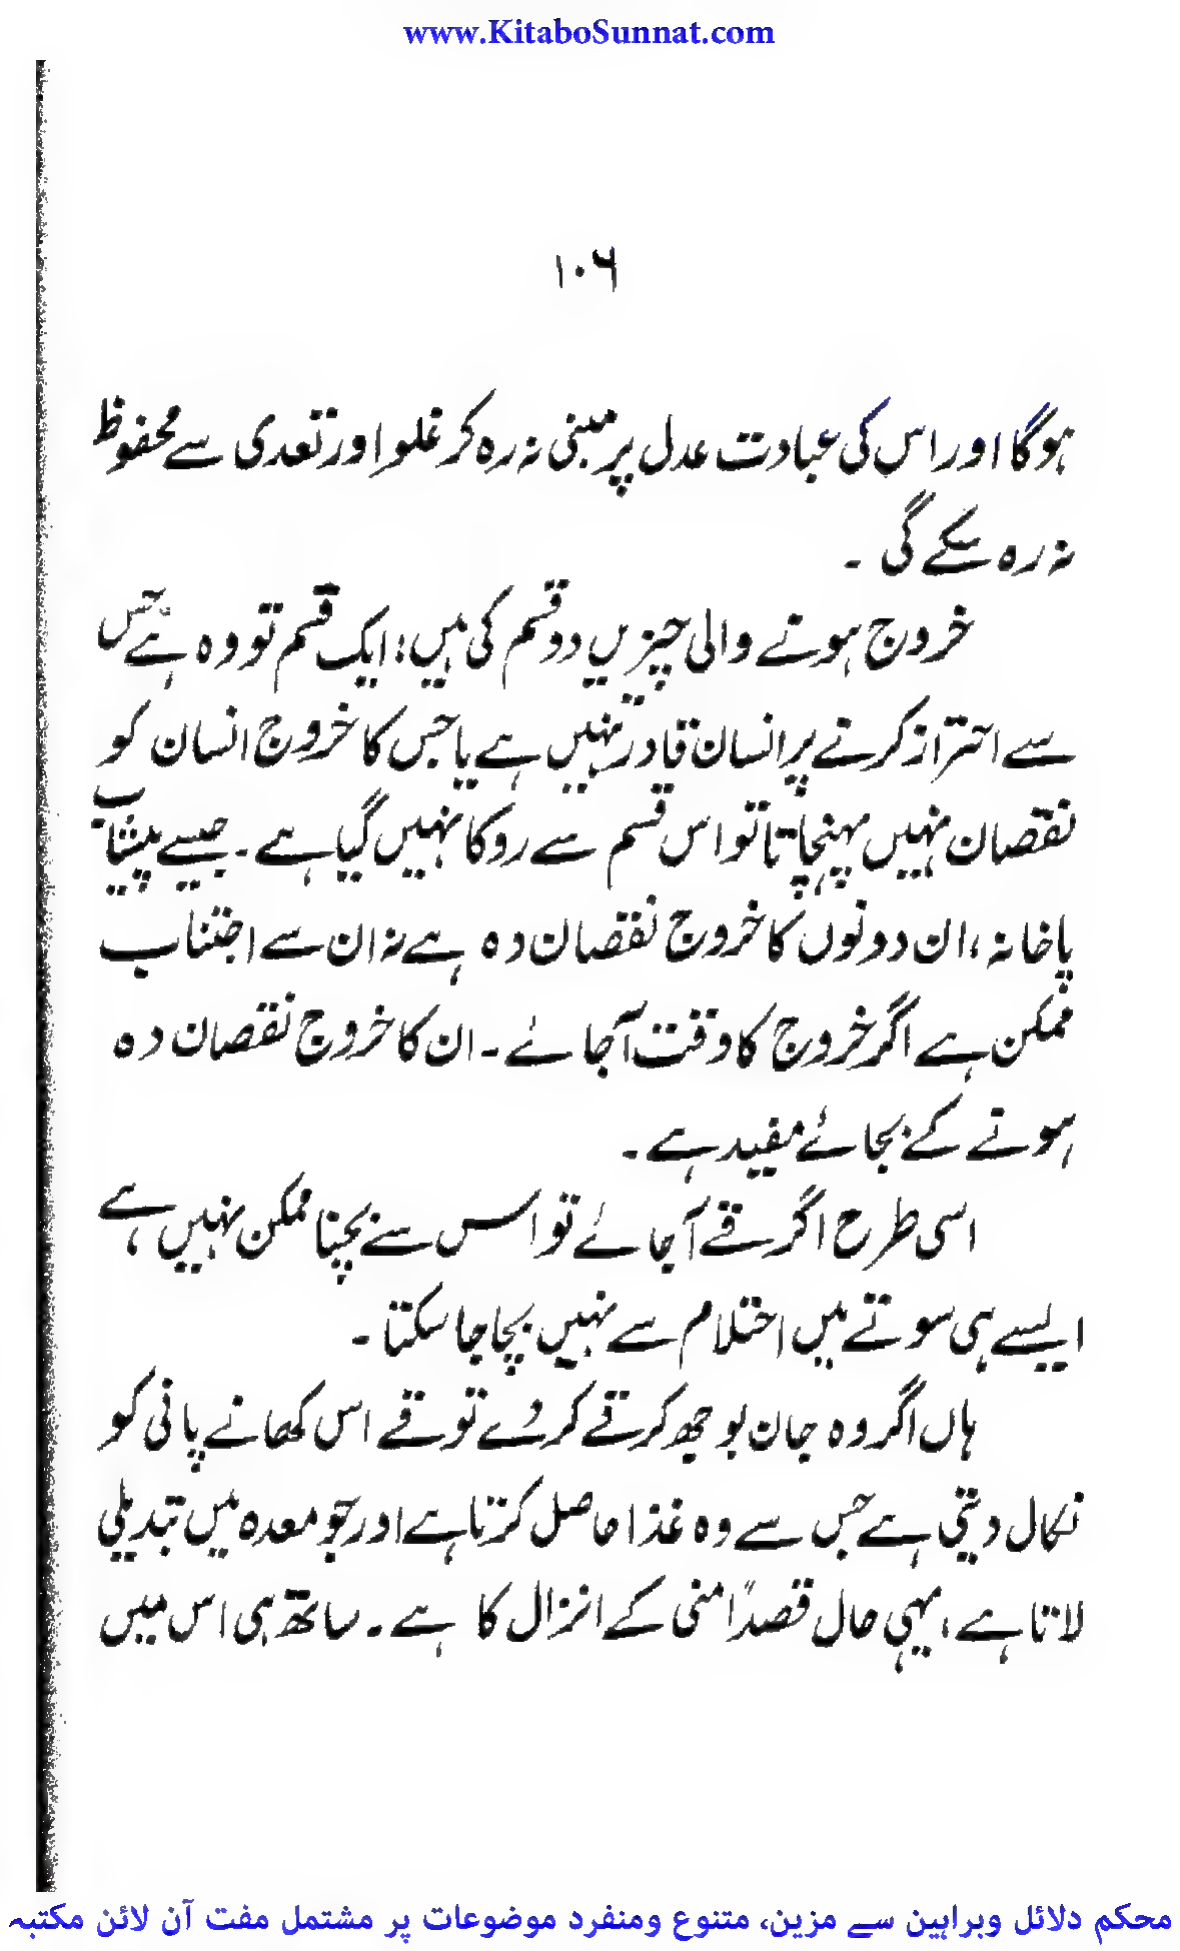 www.KitaboSunnat.com
۱۰۶
ہوگا اور اس کی عبادت عدل پر مبنی نہ رہ کر غلو اور تعدی سے محفوظ
نہ رہ سکے گی ۔
خروج ہونے والی چیزیں دو قسم کی ہیں؛ ایک قسم تو وہ ہے جس
سے احتراز کرنے پر انسان قادر نہیں ہے یا جس کا خروج انسان کو
نقصان نہیں پہنچاتا تو اس قسم سے روکا نہیں گیا ہے۔ جیسے پیشاب
پاخانہ، ان دونوں کا خروج نقصان دہ ہے نہ ان سے اجتناب
ممکن ہے اگر خروج کا وقت آجائے۔ ان کا خروج نقصان دہ
ہونے کے بجائے مفید ہے۔
اسی طرح اگر قے آجائے تو اس سے بچنا ممکن نہیں ہے
ایسے ہی سوتے میں احتلام سے نہیں بچا جا سکتا ۔
ہاں اگر وہ جان بوجھ کر قے کر دے تو قے اس کھانے پانی کو
نکال دیتی ہے جس سے وہ غذا حاصل کرتا ہے اور جو معدہ میں تبدیلی
لاتا ہے، یہی حال قصداً منی کے انزال کا ہے۔ ساتھ ہی اس میں
محکم دلائل وبراہین سے مزین، متنوع ومنفرد موضوعات پر مشتمل مفت آن لائن مکتبہ